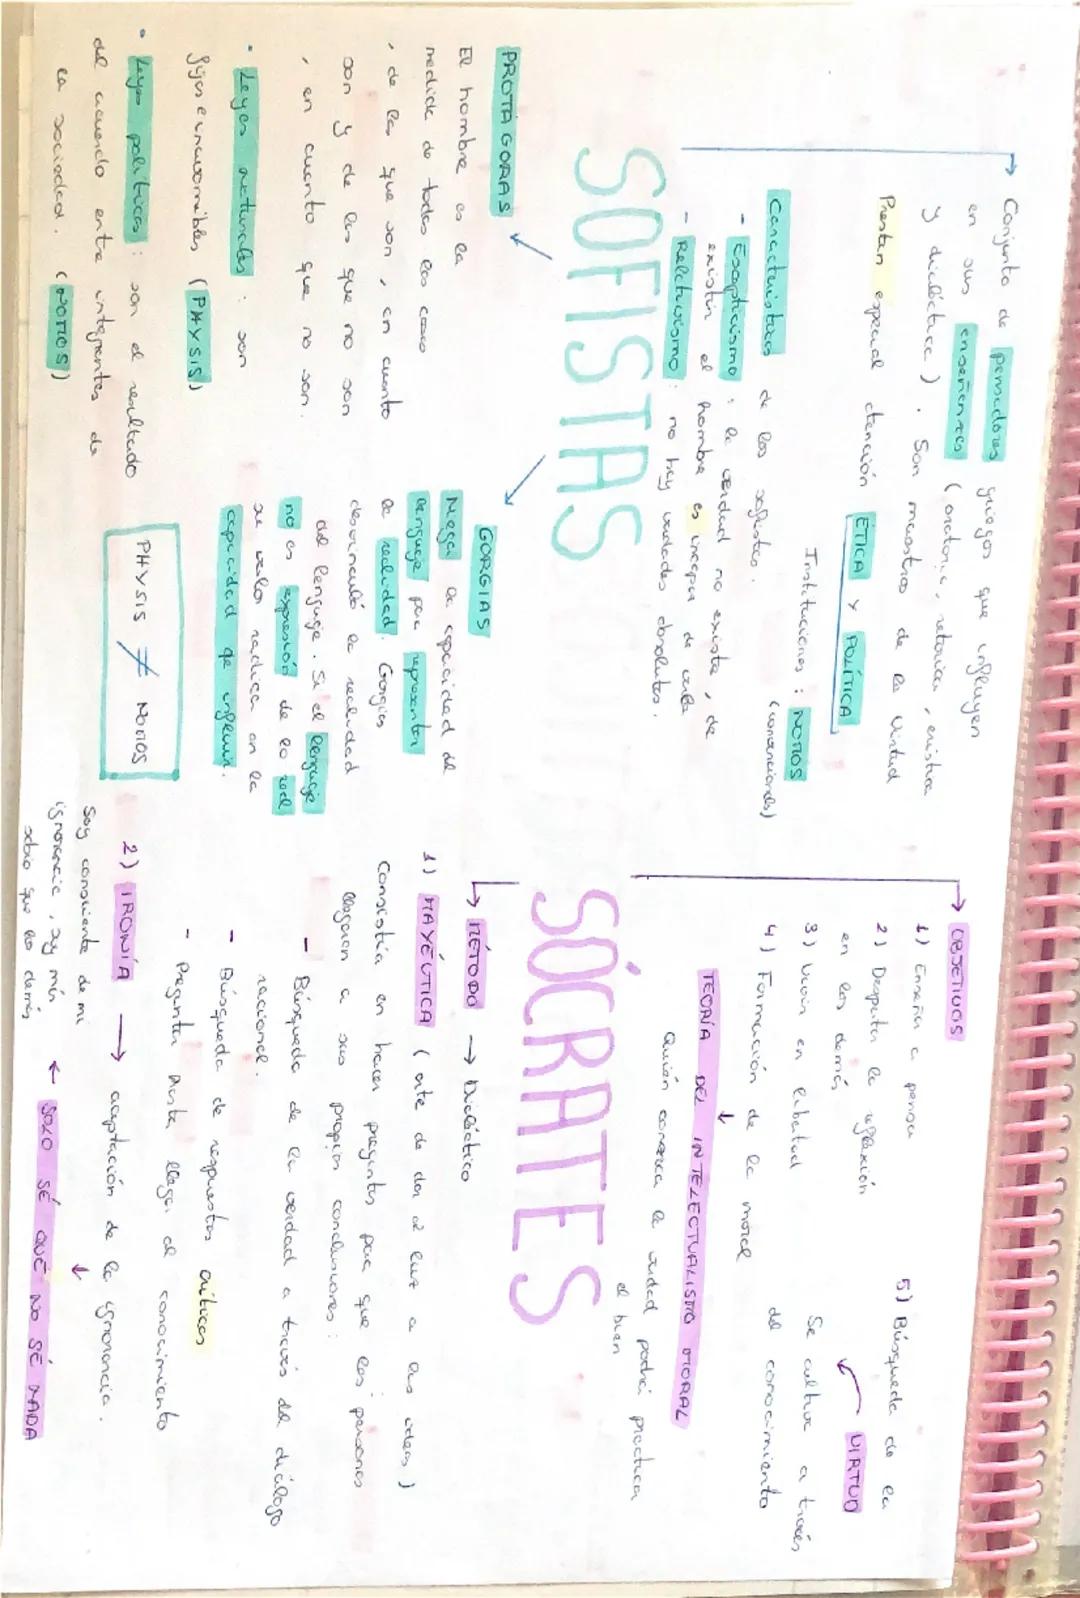 Conjunto de pensadores griegos que influyen
en sus enseñanzas (oratoria, retórica, erística
y dialéctica). Son maestros de la virtud
Prestan especial atención ÉTICA Y POLÍTICA
Instituciones: NOMOS
(convencionales)
Características de los sofistas.
- Escepticismo: la verdad no existe, de
existir el hombre es incapaz de
- Relativismo: no hay verdades absolutas.
SOFISTAS
PROTÁGORAS
El hombre es la
medida de todas las cosas
, de las que son, en cuanto
son y de las que no son
, en cuanto que no son.
• Leyes naturales: son
fijas e inamovibles (PHYSIS)
• Leyes políticas: son el resultado
del acuerdo entre integrantes de
la sociedad. (NOMOS)
GORGIAS
Niega la capacidad del
lenguaje para representar
la realidad. Gorgias
desvinculó la realidad
del lenguaje. Si el lenguaje
no es expresión de lo real
su valor radica en la
capacidad de influencia.
PHYSIS ≠ NOMOS
→ OBJETIVOS
1) Enseñar a pensar
2) Despertar la reflexión
en los demás
3) Vivir en libertad
4) Formación de la moral
5) Búsqueda de la
VIRTUD
Se cultiva a través
del conocimiento
TEORÍA DEL INTELECTUALISMO MORAL
↓
Quién conozca la verdad podrá practicar
el bien
SÓCRATES
→ MÉTODO → Dialéctico
1) MAYÉUTICA (arte de dar a luz a las ideas)
Consistía en hacer preguntas para que las personas
llegaran a sus propias conclusiones:
- Búsqueda de la verdad a través del diálogo
racional.
- Búsqueda de respuestas críticas
- Preguntar hasta llegar al conocimiento
2) IRONÍA → aceptación de la ignorancia.
↓
← SOLO SÉ QUE NO SÉ NADA
Soy consciente de mi
ignorancia, soy más
sabio que los demás